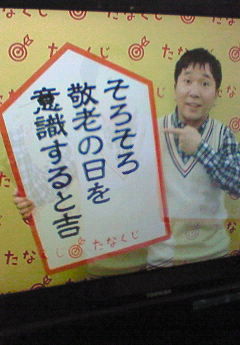 たなくじ
たなくじ
そろそろ
敬老の日を
意識すると吉
たなくじ
たなくじ